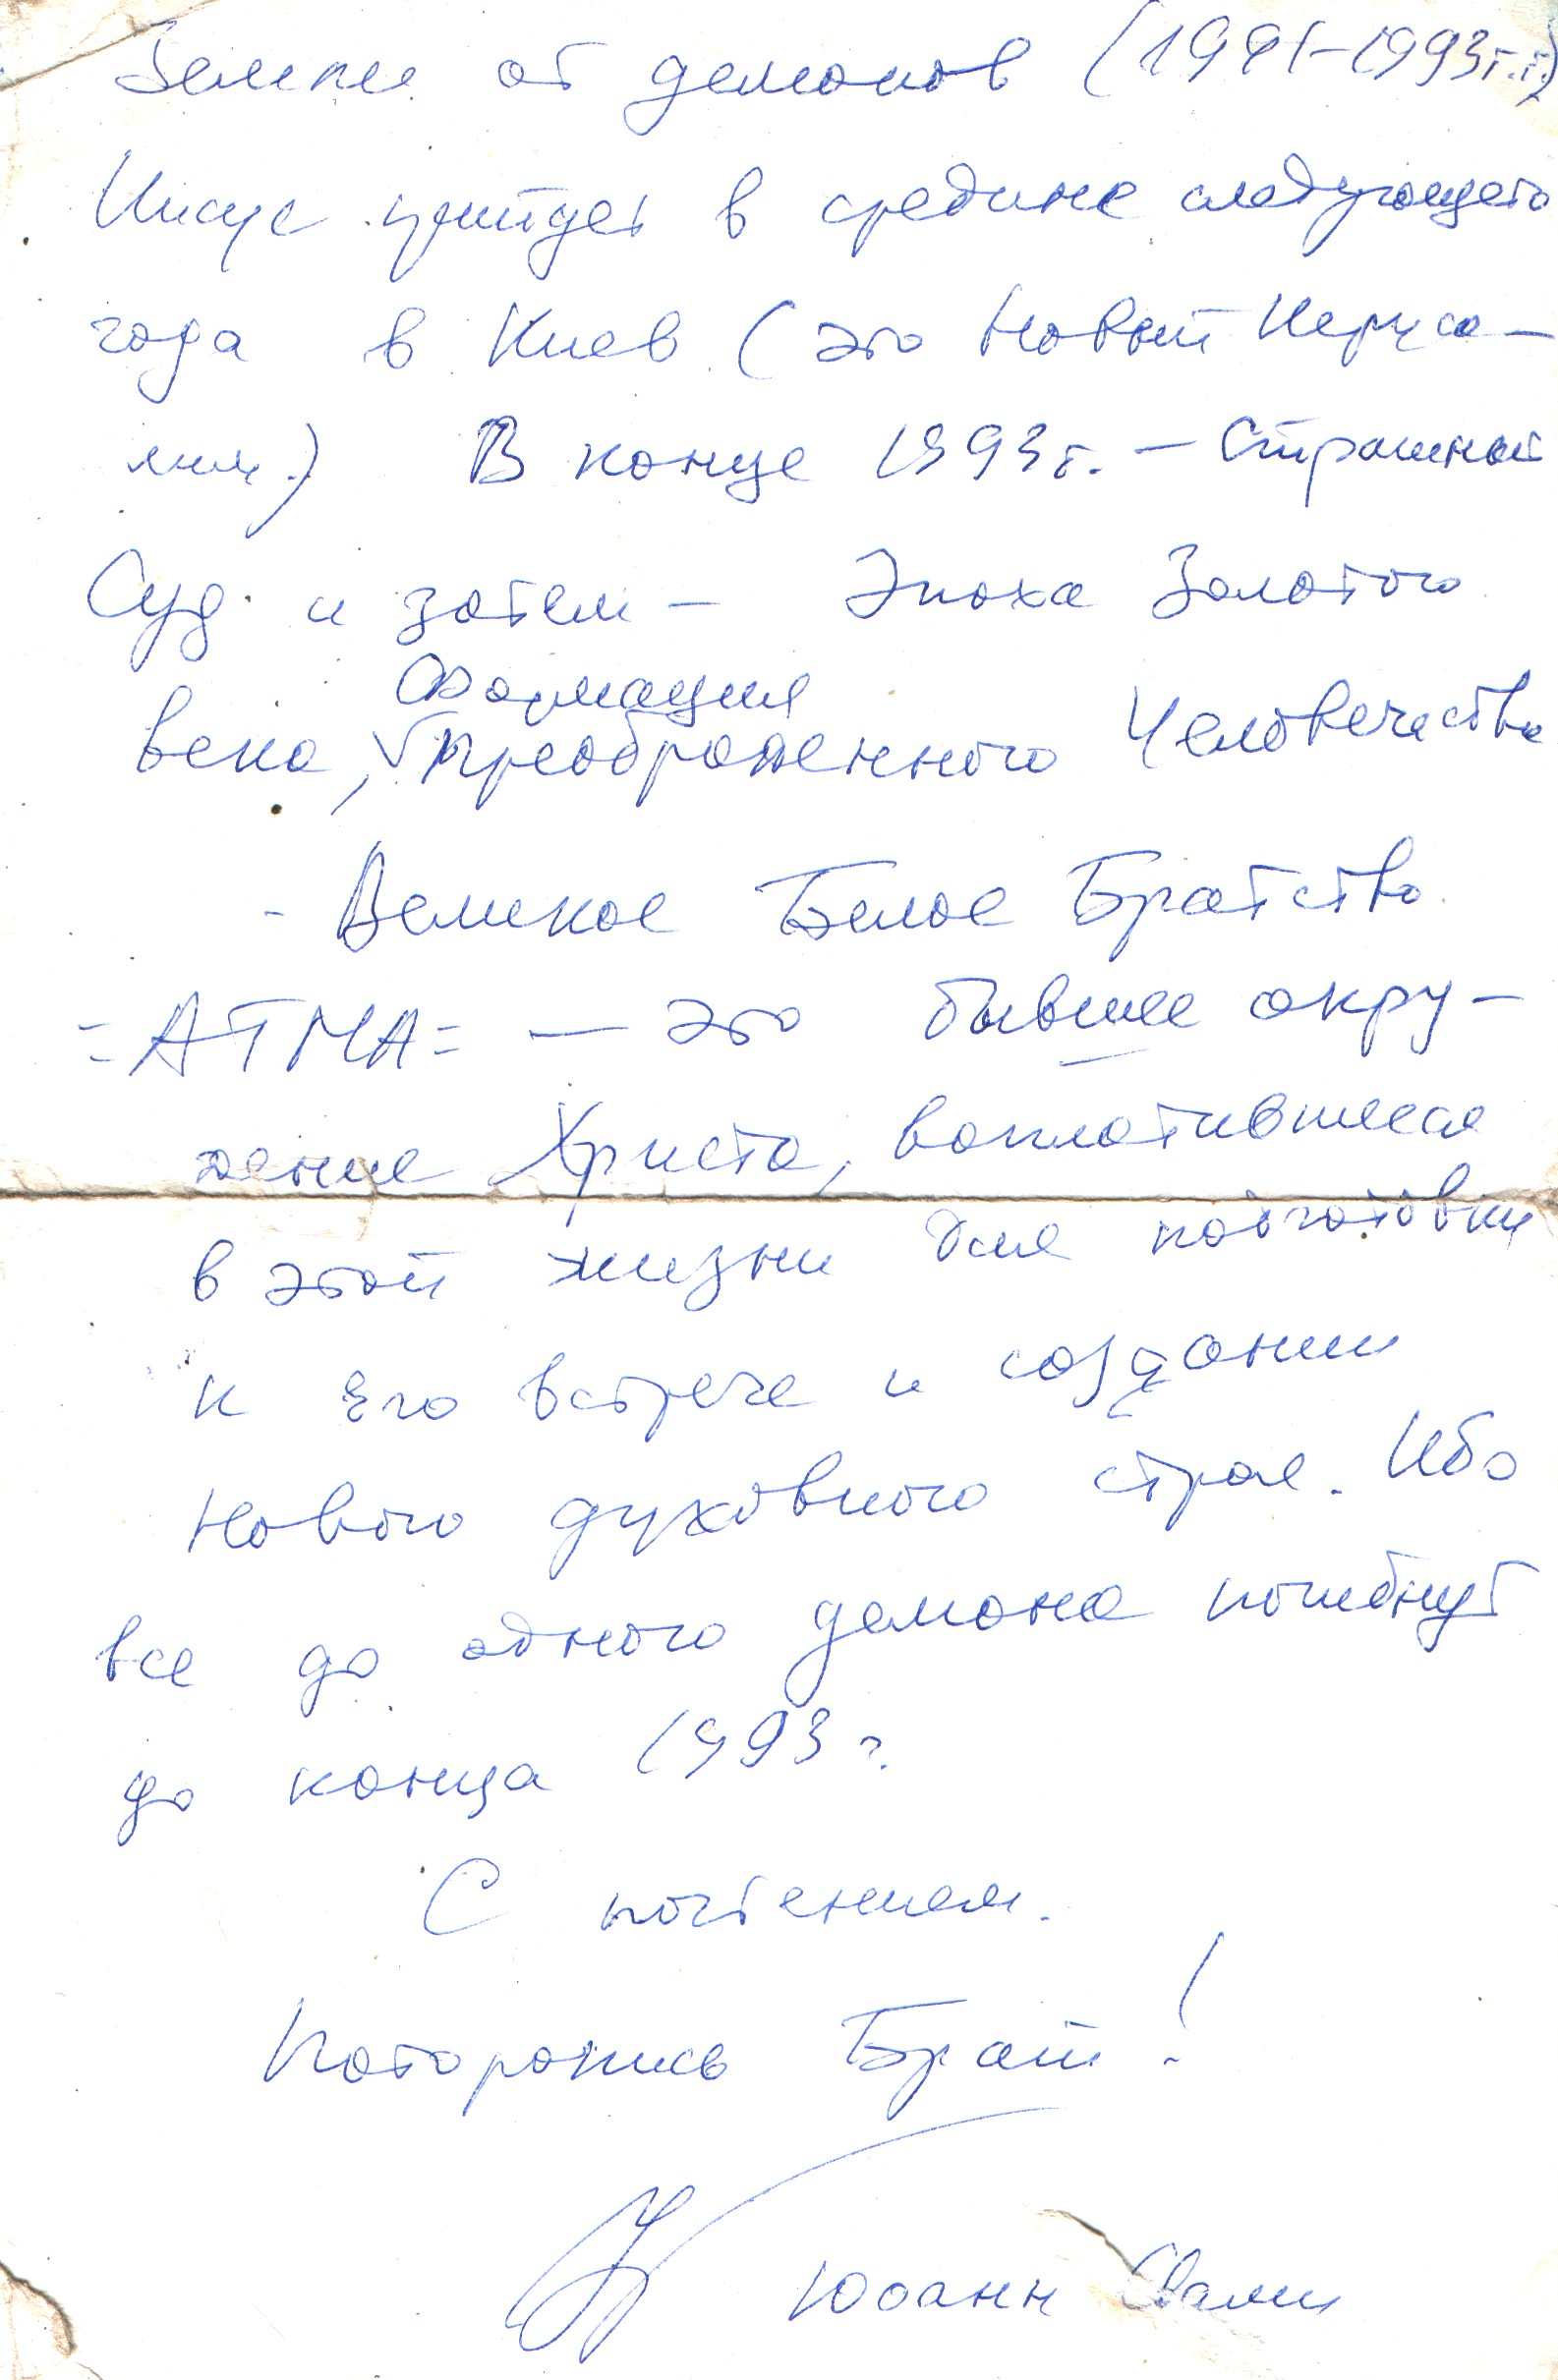 Земли от демонов (1991-1993г.г.)
Иисус прийдет в средине следующего
года в Киев (это Новый Иеруса-
лим.) В конце 1993г. — Страшный
Суд и затем — Эпоха Золотого
Формация
века, √ преображенного Человечества
- Великое Белое Братство
=АТМА= — это бывшее окру-
жение Христа, воплотившееся
в этой жизни для подготовки
к Его встрече и создании
нового духовного строя. Ибо
все до одного демона погибнут
до конца 1993 г.
С почтением.
Поторопись Брат!
Юоанн Свами